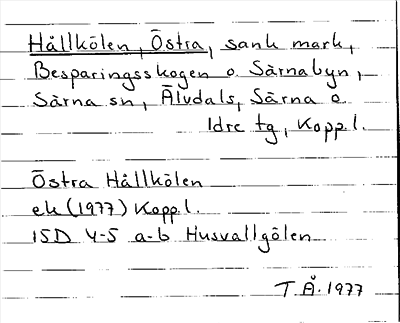 Hållkölen, Östra, sank mark,
Besparingsskogen o Särnabyn,
Särna sn, Älvdals, Särna o
Idre tg, Koppl.
Östra Hållkölen
ek (1977) Koppl.
15D 4-5 a-b Husvallgölen
T.Å. 1977